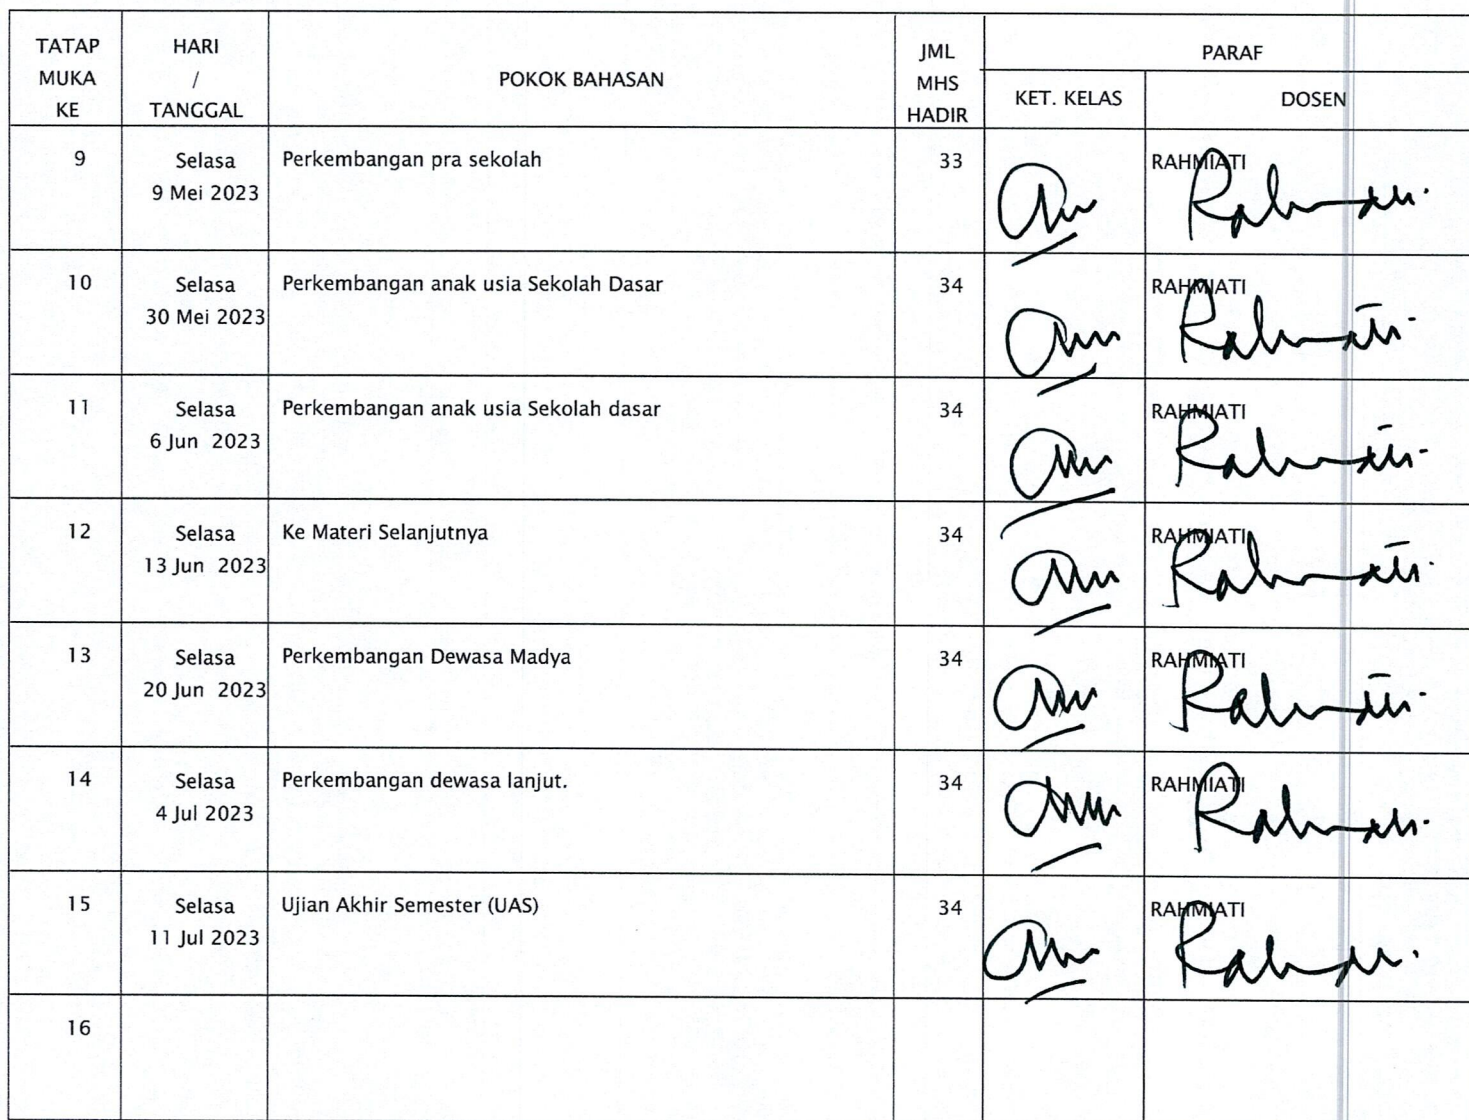 TATAP MUKA KE
HARI / TANGGAL
POKOK BAHASAN
JML MHS HADIR
PARAF
KET. KELAS
DOSEN
9
Selasa
9 Mei 2023
Perkembangan pra sekolah
33
RAHMIATI
10
Selasa
30 Mei 2023
Perkembangan anak usia Sekolah Dasar
34
RAHMIATI
11
Selasa
6 Jun 2023
Perkembangan anak usia Sekolah dasar
34
RAHMIATI
12
Selasa
13 Jun 2023
Ke Materi Selanjutnya
34
RAHMIATI
13
Selasa
20 Jun 2023
Perkembangan Dewasa Madya
34
RAHMIATI
14
Selasa
4 Jul 2023
Perkembangan dewasa lanjut.
34
RAHMIATI
15
Selasa
11 Jul 2023
Ujian Akhir Semester (UAS)
34
RAHMIATI
16